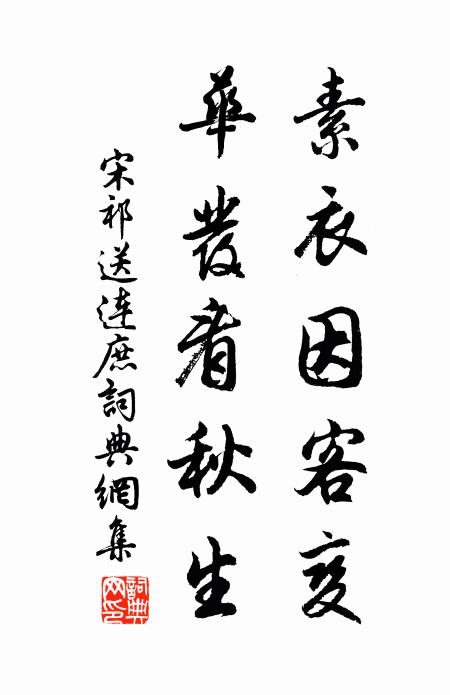 素衣因客变
華發看秋生
宋祁送連庶詞典網集
詞典
网印